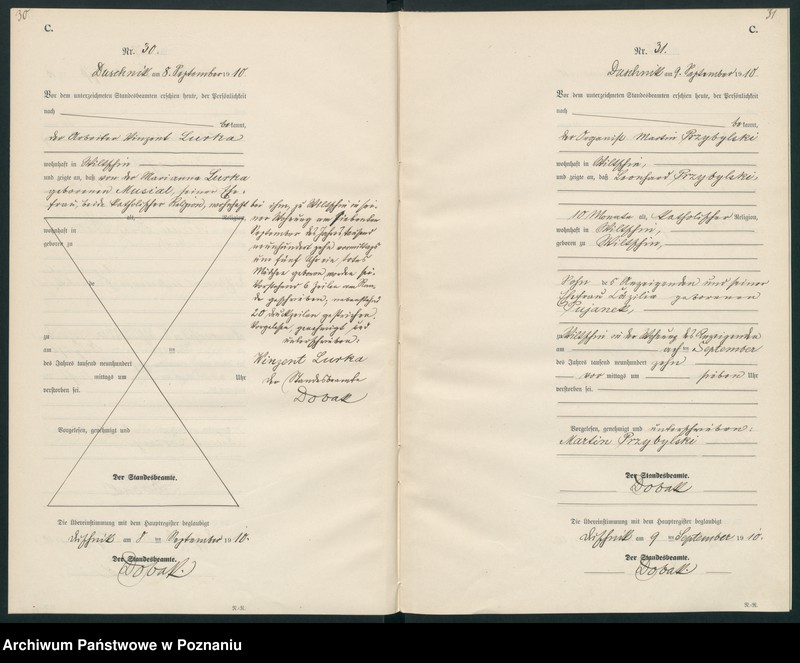 30
C.
Nr. 30.
Duschnik am 8. September 1910.
Vor dem unterzeichneten Standesbeamten erschien heute, der Persönlichkeit
nach
bekannt,
der Arbeiter Winzent Lurka
wohnhaft in Wiltschin
und zeigte an, daß von der Marianna Lurka
geborenen Musial, seiner Ehe-
frau, beide katholischer Religion, wohnhaft bei ihm, zu Wiltschin in sei-
alt, Religion,
ner Wohnung am siebenten
wohnhaft in
September des Jahres tausend
geboren zu
neunhundert zehn vormittags
um fünf Uhr ein totes
Mädchen geboren worden sei.
Vorstehend 6 Zeilen am Ran-
de geschrieben, untenstehend
20 Druckzeilen gestrichen.
Vorgelesen, genehmigt und
unterschrieben:
Winzent Lurka
Der Standesbeamte
Doball
zu
am ten
des Jahres tausend neunhundert
mittags um Uhr
verstorben sei.
Vorgelesen, genehmigt und
Der Standesbeamte.
Die Übereinstimmung mit dem Hauptregister beglaubigt
Duschnik am 8 ten September 1910.
Der Standesbeamte.
Doball.
R.-R.
31
C.
Nr. 31.
Duschnik am 9. September 1910.
Vor dem unterzeichneten Standesbeamten erschien heute, der Persönlichkeit
nach
bekannt,
der Organist Martin Przybylski
wohnhaft in Wiltschin,
und zeigte an, daß Leonhard Przybylski,
10 Monate alt, katholischer Religion,
wohnhaft in Wiltschin,
geboren zu Wiltschin,
Sohn des Anzeigenden und seiner
Ehefrau Cäzilia geborenen
Pujanek,
zu Wiltschin in der Wohnung des Anzeigenden
am achten September
des Jahres tausend neunhundert zehn
vor mittags um sieben Uhr
verstorben sei.
Vorgelesen, genehmigt und unterschrieben:
Martin Przybylski
Der Standesbeamte.
Doball
Die Übereinstimmung mit dem Hauptregister beglaubigt
Duschnik am 9 ten September 1910.
Der Standesbeamte.
Doball.
R.-R.
Archiwum Państwowe w Poznaniu